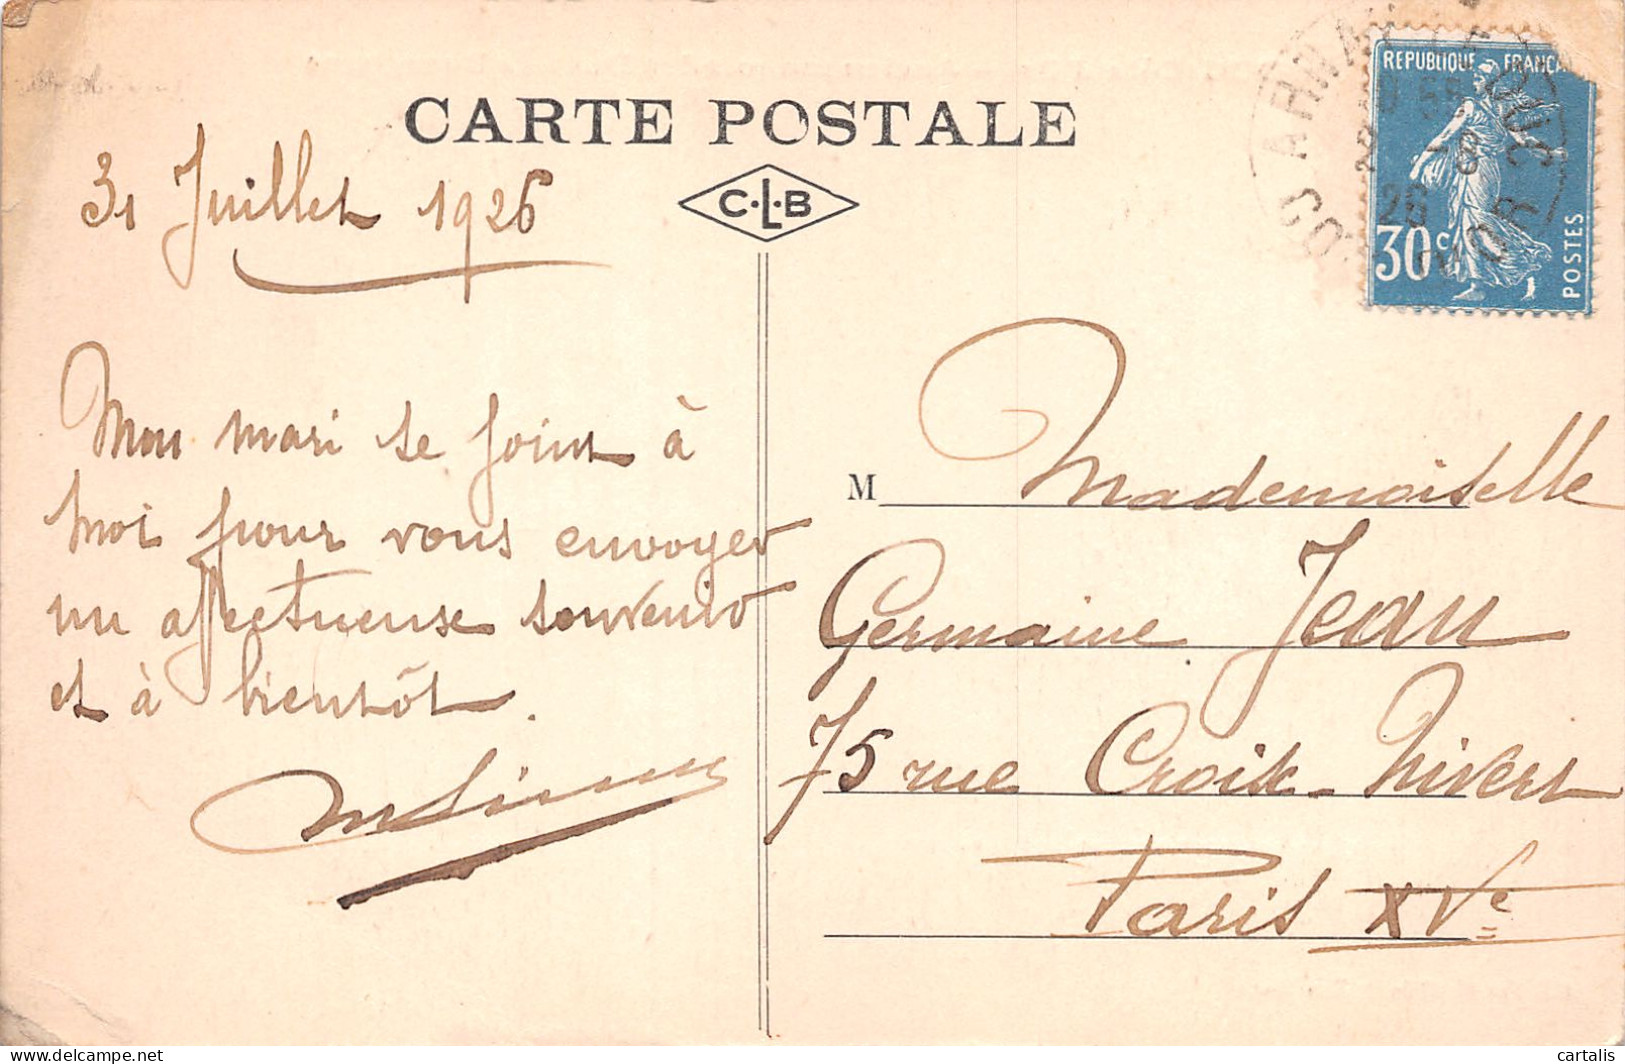 CARTE POSTALE
C.L.B
31 Juillet 1926
Mon mari se joint à
moi pour vous envoyer
un affectueuse souvenir
et à bientôt.
REPUBLIQUE FRANCAI
30c
POSTES
ARNAY LE DUC
COTE D'OR
26
M Mademoiselle
Germaine Jean
75 rue Croix-Nivert
Paris XVe
delcampe.net
cartalis